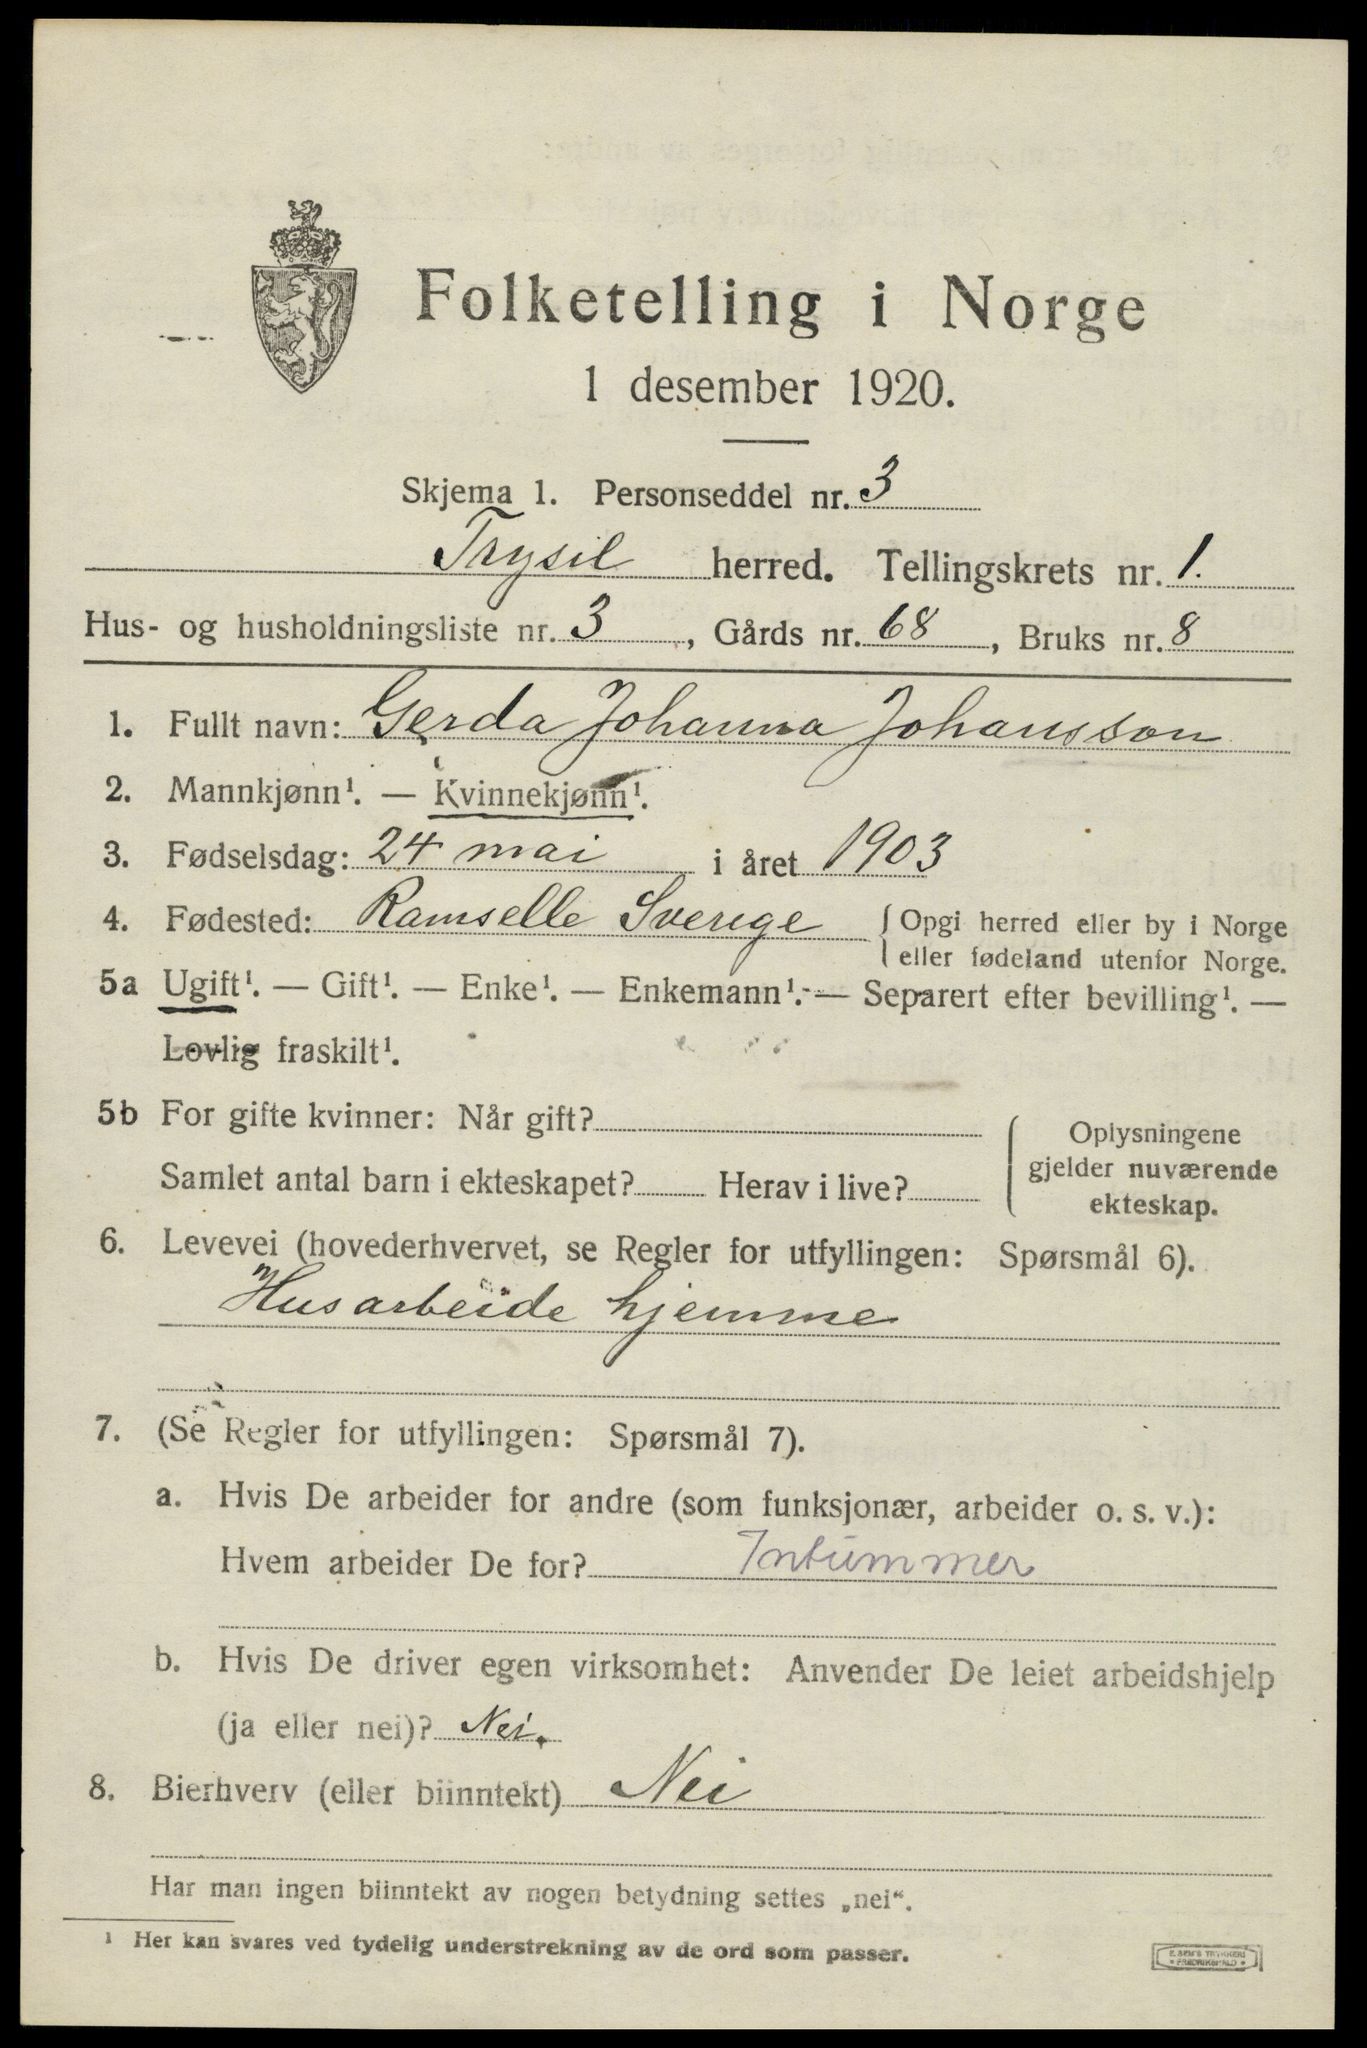 Folketelling i Norge
1 desember 1920.
Skjema 1. Personseddel nr. 3
Trysil herred. Tellingskrets nr. 1.
Hus- og husholdningsliste nr. 3, Gårds nr. 68, Bruks nr. 8
1. Fullt navn: Gerda Johanna Johansson
2. Mannkjønn¹. — Kvinnekjønn¹.
3. Fødselsdag: 24 mai i året 1903
4. Fødested: Ramselle Sverige { Opgi herred eller by i Norge
eller fødeland utenfor Norge.
5a Ugift¹. — Gift¹. — Enke¹. — Enkemann¹. — Separert efter bevilling¹. —
Lovlig fraskilt¹.
5b For gifte kvinner: Når gift?
Samlet antal barn i ekteskapet? Herav i live?
Oplysningene
gjelder nuværende
ekteskap.
6. Levevei (hovederhvervet, se Regler for utfyllingen: Spørsmål 6).
Husarbeide hjemme
7. (Se Regler for utfyllingen: Spørsmål 7).
a. Hvis De arbeider for andre (som funksjonær, arbeider o. s. v.):
Hvem arbeider De for?
b. Hvis De driver egen virksomhet: Anvender De leiet arbeidshjelp
(ja eller nei)? Nei.
8. Bierhverv (eller biinntekt) Nei
Har man ingen biinntekt av nogen betydning settes „nei“.
¹ Her kan svares ved tydelig understrekning av de ord som passer.
E. SEM'S TRYKKERI
FREDRIKSHALD